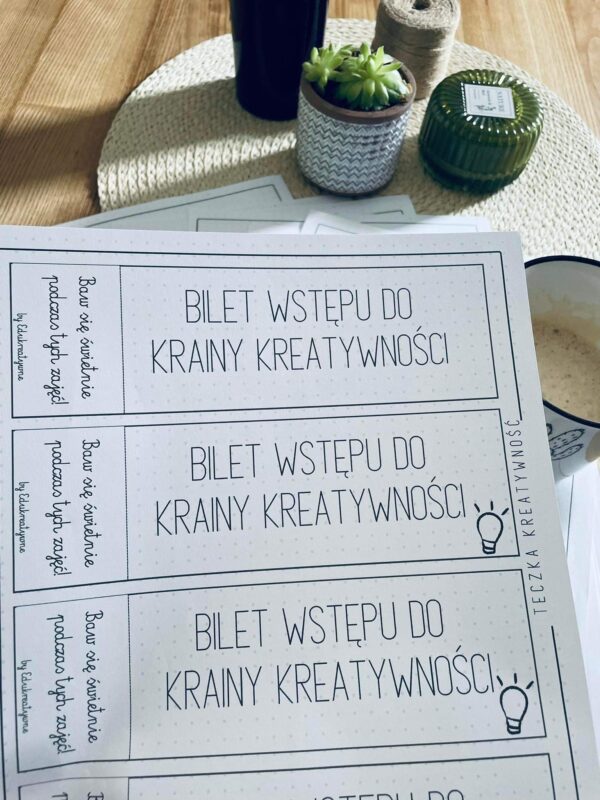 Baw się świetnie
podczas tych zajęć!
by Edukreatywne
BILET WSTĘPU DO
KRAINY KREATYWNOŚCI
Baw się świetnie
podczas tych zajęć!
by Edukreatywne
BILET WSTĘPU DO
KRAINY KREATYWNOŚCI
Baw się świetnie
podczas tych zajęć!
by Edukreatywne
BILET WSTĘPU DO
KRAINY KREATYWNOŚCI
TECZKA KREATYWNOŚĆ